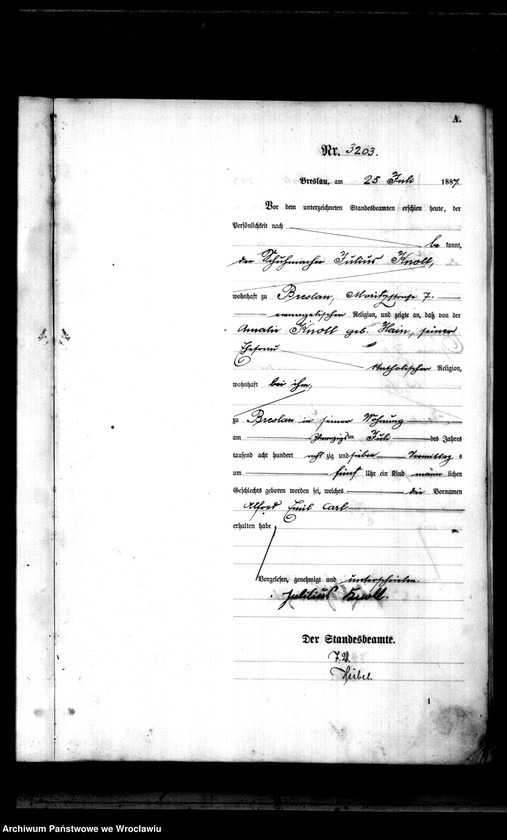 A.
Nr. 3203.
Breslau, am 25 Juli 1887.
Vor dem unterzeichneten Standesbeamten erschien heute, der
Persönlichkeit nach
be kannt,
der Schuhmacher Julius Knoll,
wohnhaft zu Breslau, Moritzstraße 7.
evangelischer Religion, und zeigte an, daß von der
Amalie Knoll geb. Hain, seiner
Ehefrau
katholischer Religion,
wohnhaft bei ihm,
zu Breslau in seiner Wohnung
am zwanzigsten Juli des Jahres
tausend acht hundert acht zig und sieben Vormittags
um fünf Uhr ein Kind männ lichen
Geschlechts geboren worden sei, welches die Vornamen
Alfred Emil Carl
erhalten habe,
Vorgelesen, genehmigt und unterschrieben.
Julius Knoll.
Der Standesbeamte.
J. V.
1
Archiwum Państwowe we Wrocławiu